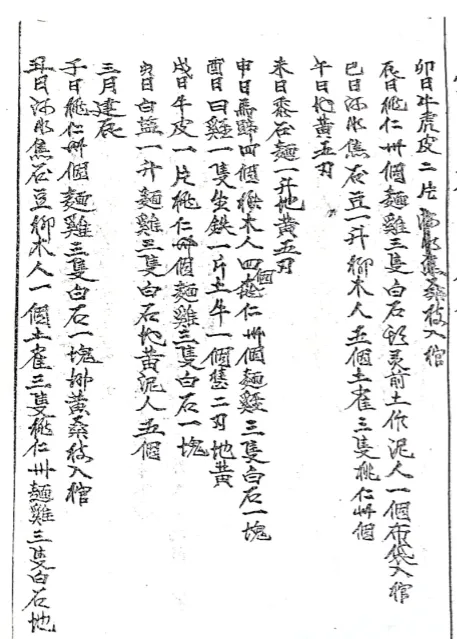 卯日牛虎皮二片河水焦桑枝入棺
辰日桃仁卅個麵雞三隻白石灵前土作泥人一個布袋入棺
巳日河水焦石豆一升柳木人五個土雀三隻桃仁卅個
午日地黃五刃
未日黍谷麵一升地黃五刃
申日馬蹄四個柳木人四個桃仁卅個麵雞三隻白石一塊
酉日白雞一隻生鉄一片土牛一個二刃地黃
戌日牛皮一片桃仁卅個麵雞三隻白石一塊
亥日白盐一升麵雞三隻白石地黃泥人五個
三月建辰
子日桃仁卅個麵雞三隻白石一塊黃桑枝入棺
丑日河水焦石豆柳木人一個土雀三隻桃仁卅麵雞三隻白石地